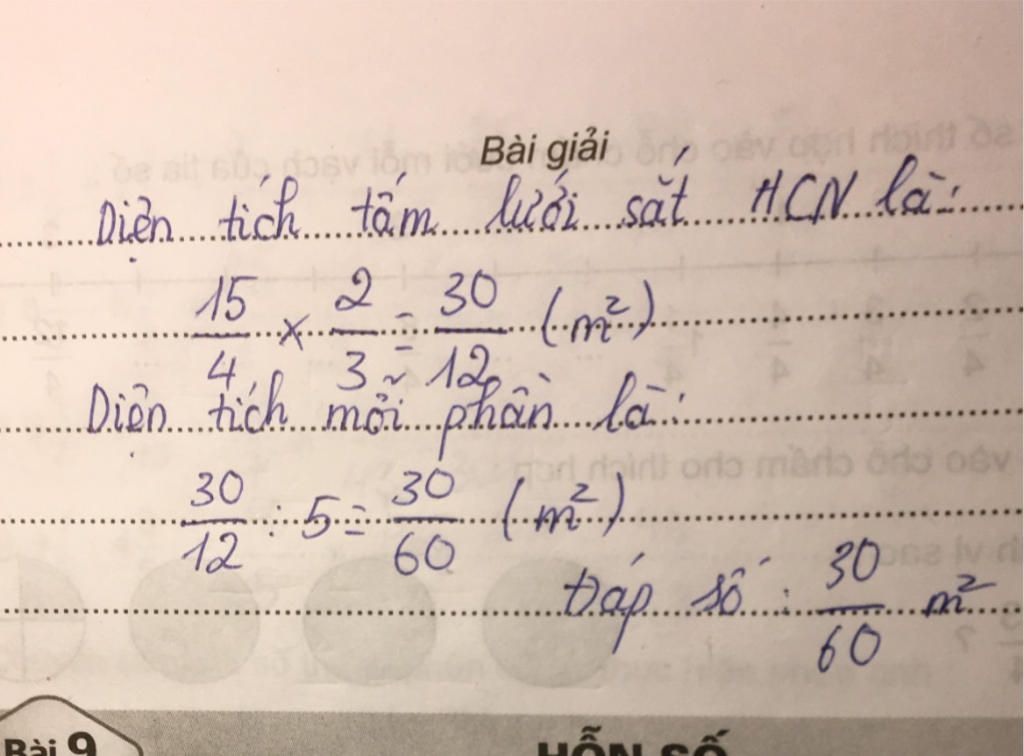 Bài giải
Diện tích tấm lưới sắt HCN là:
15/4 × 2/3 = 30/12 (m²)
Diện tích mỗi phần là:
30/12 : 5 = 30/60 (m²)
Đáp số : 30/60 m²
Bài 9 HỖN SỐ